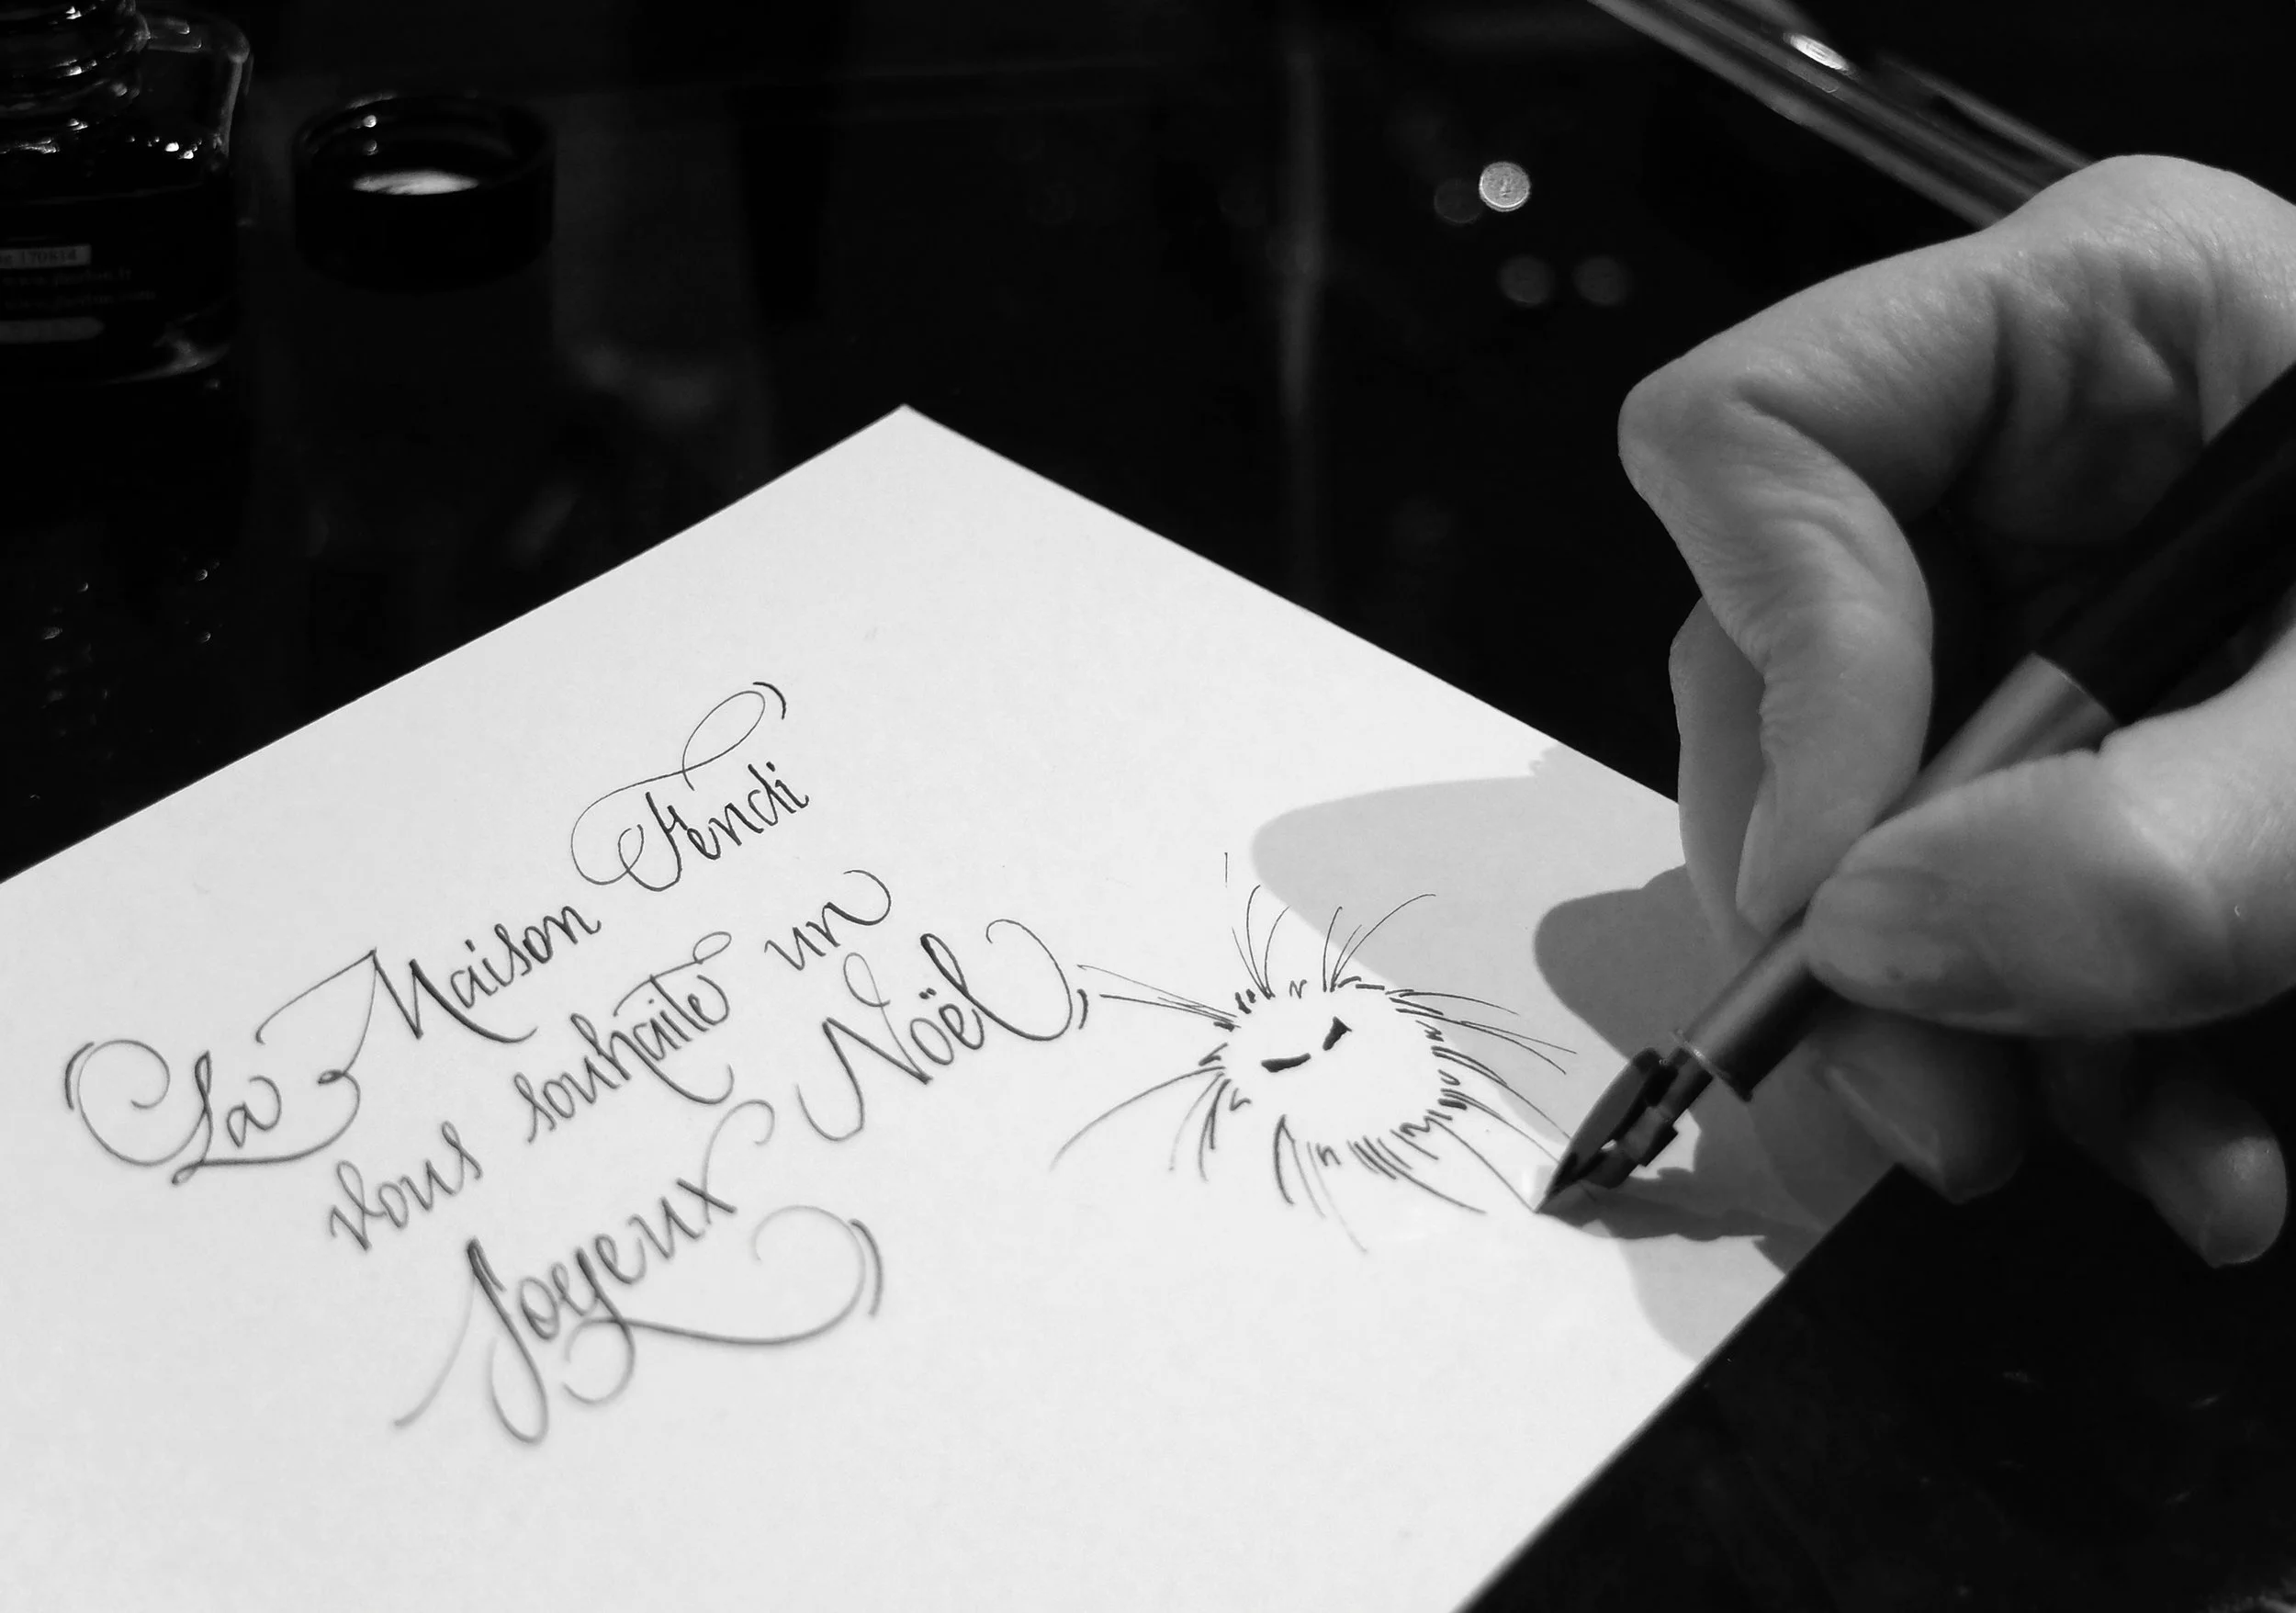 La Maison Fendi
vous souhaite un
Joyeux Noël
170834